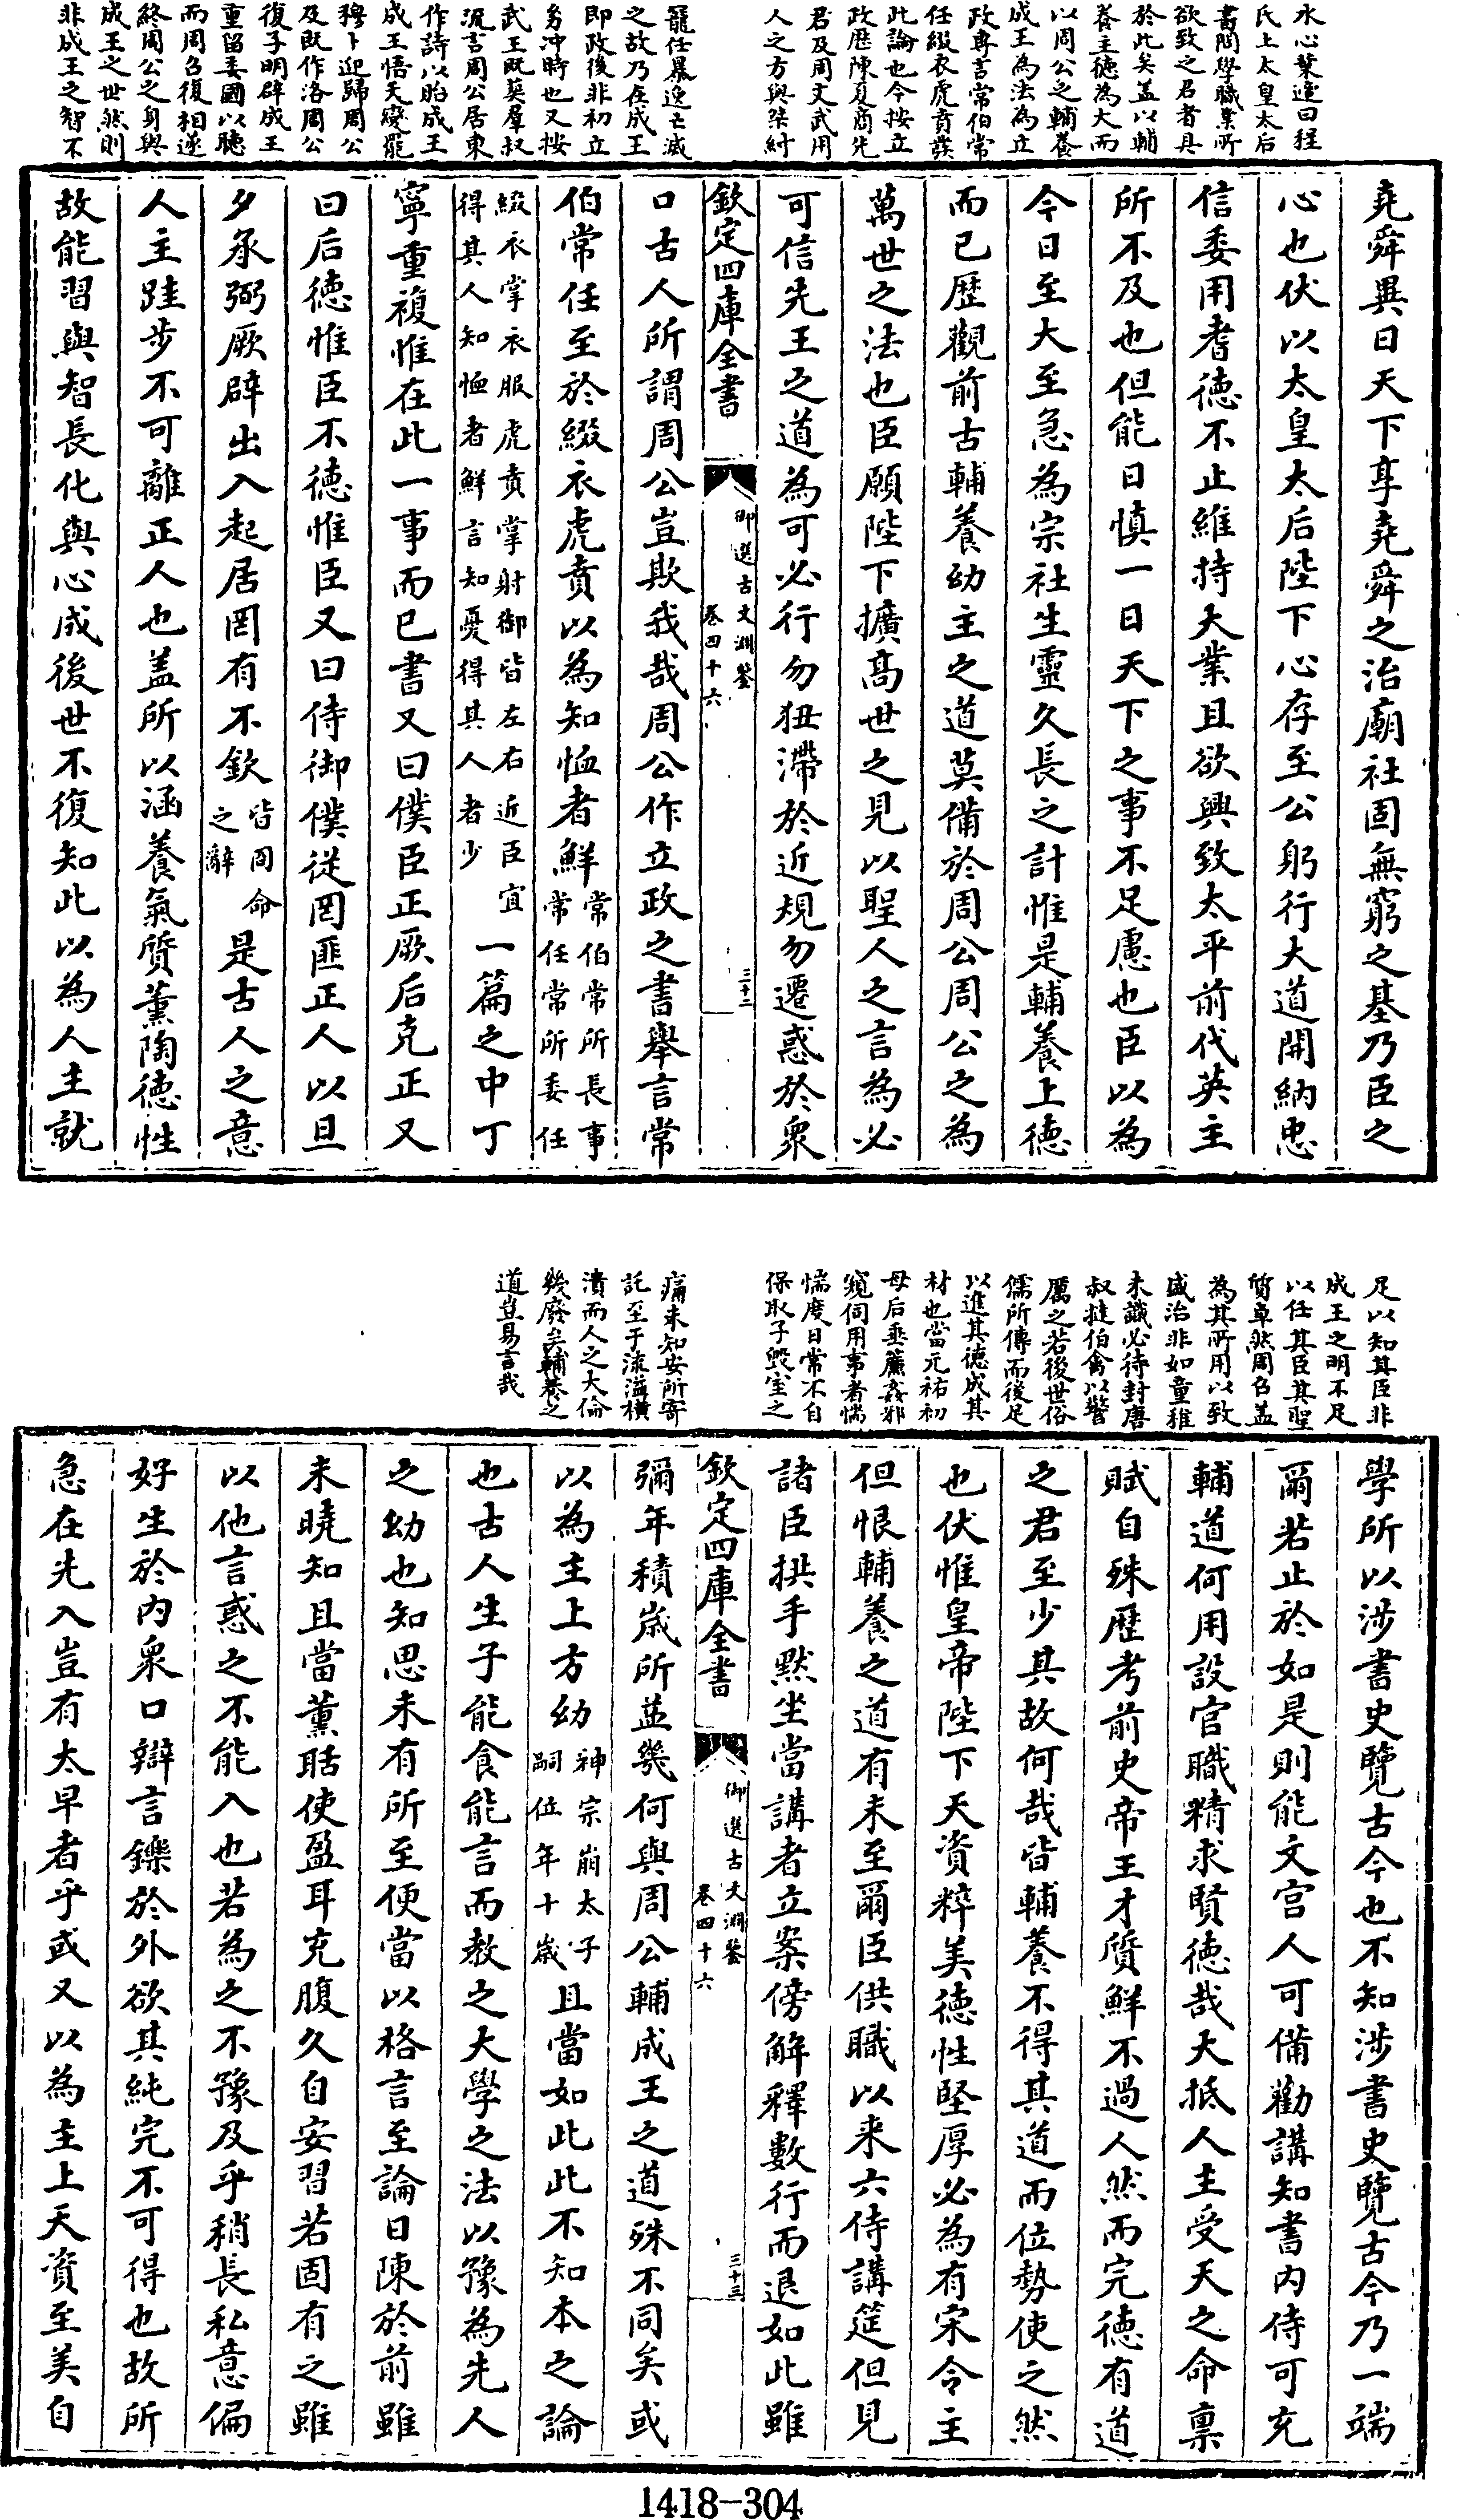 水心葉適曰程
氏上太皇太后
書問學職業所
欲致之君者具
於此矣蓋以輔
養主徳為大而
以周公之輔養
成王為法為立
政専言常伯常
任綴衣虎賁蓋
此論也今按立
政歴陳夏商先
君及周文武用
人之方與桀紂
寵任暴逸亡滅
之故乃在成王
即政後非初立
幼沖時也又按
武王既䘮羣叔
流言周公居東
作詩以貽成王
成王悟天變罷
穆卜迎歸周公
及既作洛周公
復子明辟成王
重留委國以聽
而周召復相遂
終周公之身與
成王之世然則
非成王之智不
堯舜異日天下享堯舜之治廟社固無窮之基乃臣之
心也伏以太皇太后陛下心存至公躬行大道開納忠
信委用耆徳不止維持大業且欲興致太平前代英主
所不及也但能日慎一日天下之事不足慮也臣以為
今日至大至急為宗社生靈久長之計惟是輔養上徳
而已歴觀前古輔養幼主之道莫備於周公周公之為
萬世之法也臣願陛下擴髙世之見以聖人之言為必
可信先王之道為可必行勿狃滯於近規勿遷惑於衆
欽定四庫全書
御選古文淵鑒
卷四十六
三十二
口古人所謂周公豈欺我哉周公作立政之書舉言常
伯常任至於綴衣虎賁以為知恤者鮮常伯常所長事常任常所委任
綴衣掌衣服虎賁掌射御皆左右近臣宜得其人知恤者鮮言知憂得其人者少一篇之中丁
寧重複惟在此一事而已書又曰僕臣正厥后克正又
曰后徳惟臣不徳惟臣又曰侍御僕從罔匪正人以旦
夕承弼厥辟出入起居罔有不欽皆冏命之辭是古人之意
人主跬步不可離正人也蓋所以涵養氣質薰陶徳性
故能習與智長化與心成後世不復知此以為人主就
足以知其臣非
成王之明不足
以任其臣其聖
質卓然周召蓋
為其所用以致
盛治非如童稚
未識必待封唐
叔撻伯禽以警
厲之若後世俗
儒所傳而後足
以進其徳成其
材也當元祐初
母后垂簾姦邪
窺伺用事者惴
惴度日常不自
保取子毁室之
痛未知安所寄
託至于流溢横
潰而人之大倫
幾廢矣輔養之
道豈易言哉
學所以涉書史覽古今也不知涉書史覽古今乃一端
爾若止於如是則能文宫人可備勸講知書内侍可充
輔道何用設官職精求賢徳哉大抵人主受天之命禀
賦自殊歴考前史帝王才質鮮不過人然而完徳有道
之君至少其故何哉皆輔養不得其道而位勢使之然
也伏惟皇帝陛下天資粹美徳性堅厚必為有宋令主
但恨輔養之道有未至爾臣供職以来六侍講筵但見
諸臣拱手黙坐當講者立案傍解釋數行而退如此雖
欽定四庫全書
御選古文淵鑒
卷四十六
三十三
彌年積嵗所益幾何與周公輔成王之道殊不同矣或
以為主上方幼神宗崩太子嗣位年十嵗且當如此此不知本之論
也古人生子能食能言而教之大學之法以豫為先人
之幼也知思未有所至便當以格言至論日陳於前雖
未曉知且當薰聒使盈耳充腹久自安習若固有之雖
以他言惑之不能入也若為之不豫及乎稍長私意偏
好生於内衆口辯言鑠於外欲其純完不可得也故所
急在先入豈有太早者乎或又以為主上天資至美自
1418-304